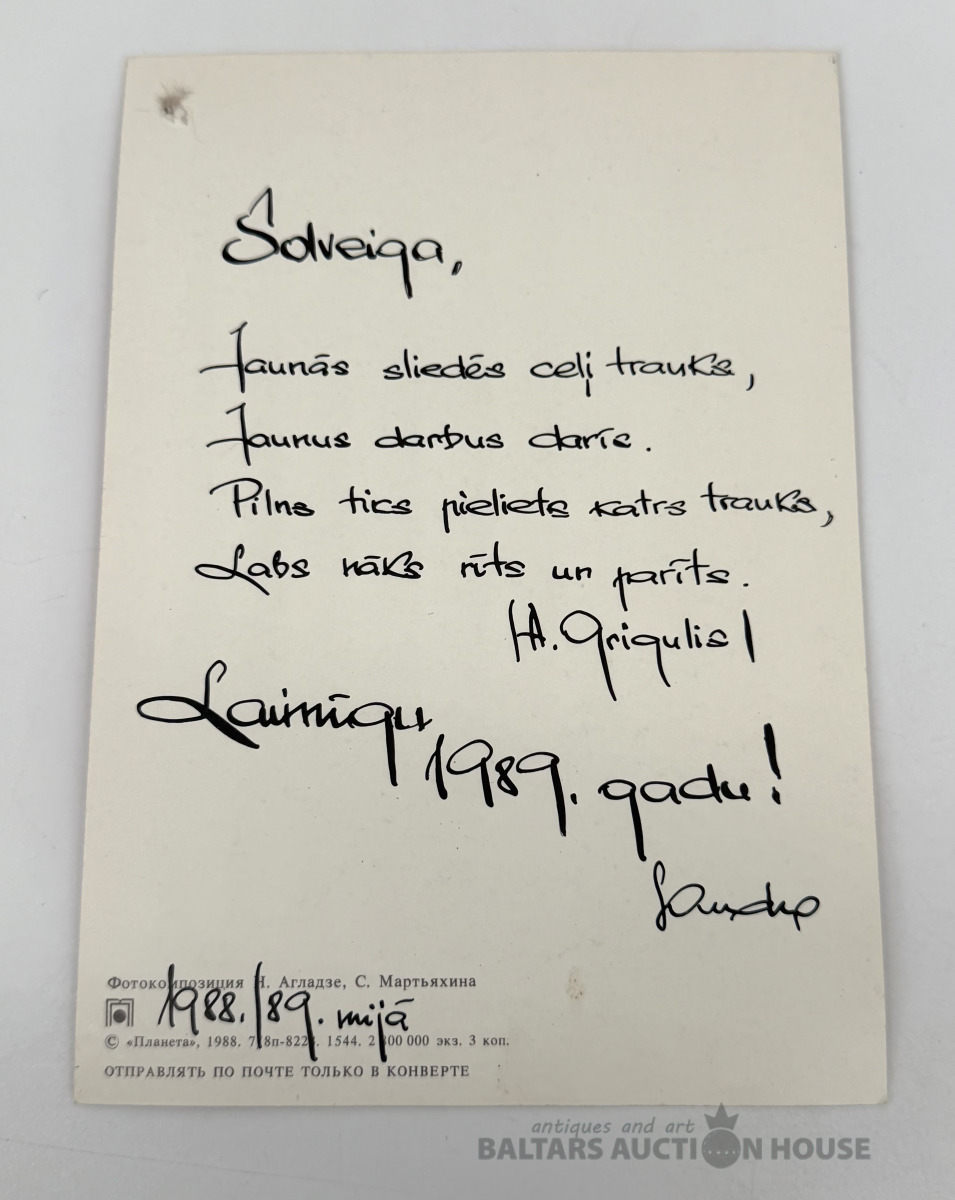 Solveiga,
Jaunās sliedēs ceļi trauks,
Jaunus darbus darīs.
Pilns tics pieliets katrs trauks,
Labs nāks rīts un parīts.
/A. Grigulis/
Laimīgu
1989. gadu!
Sandra
Фотокомпозиция Н. Агладзе, С. Мартьяхина
1988./89. mijā
© «Планета», 1988. 1544. 2 00 000 экз. 3 коп.
ОТПРАВЛЯТЬ ПО ПОЧТЕ ТОЛЬКО В КОНВЕРТЕ
antiques and art
BALTARS AUCTION HOUSE